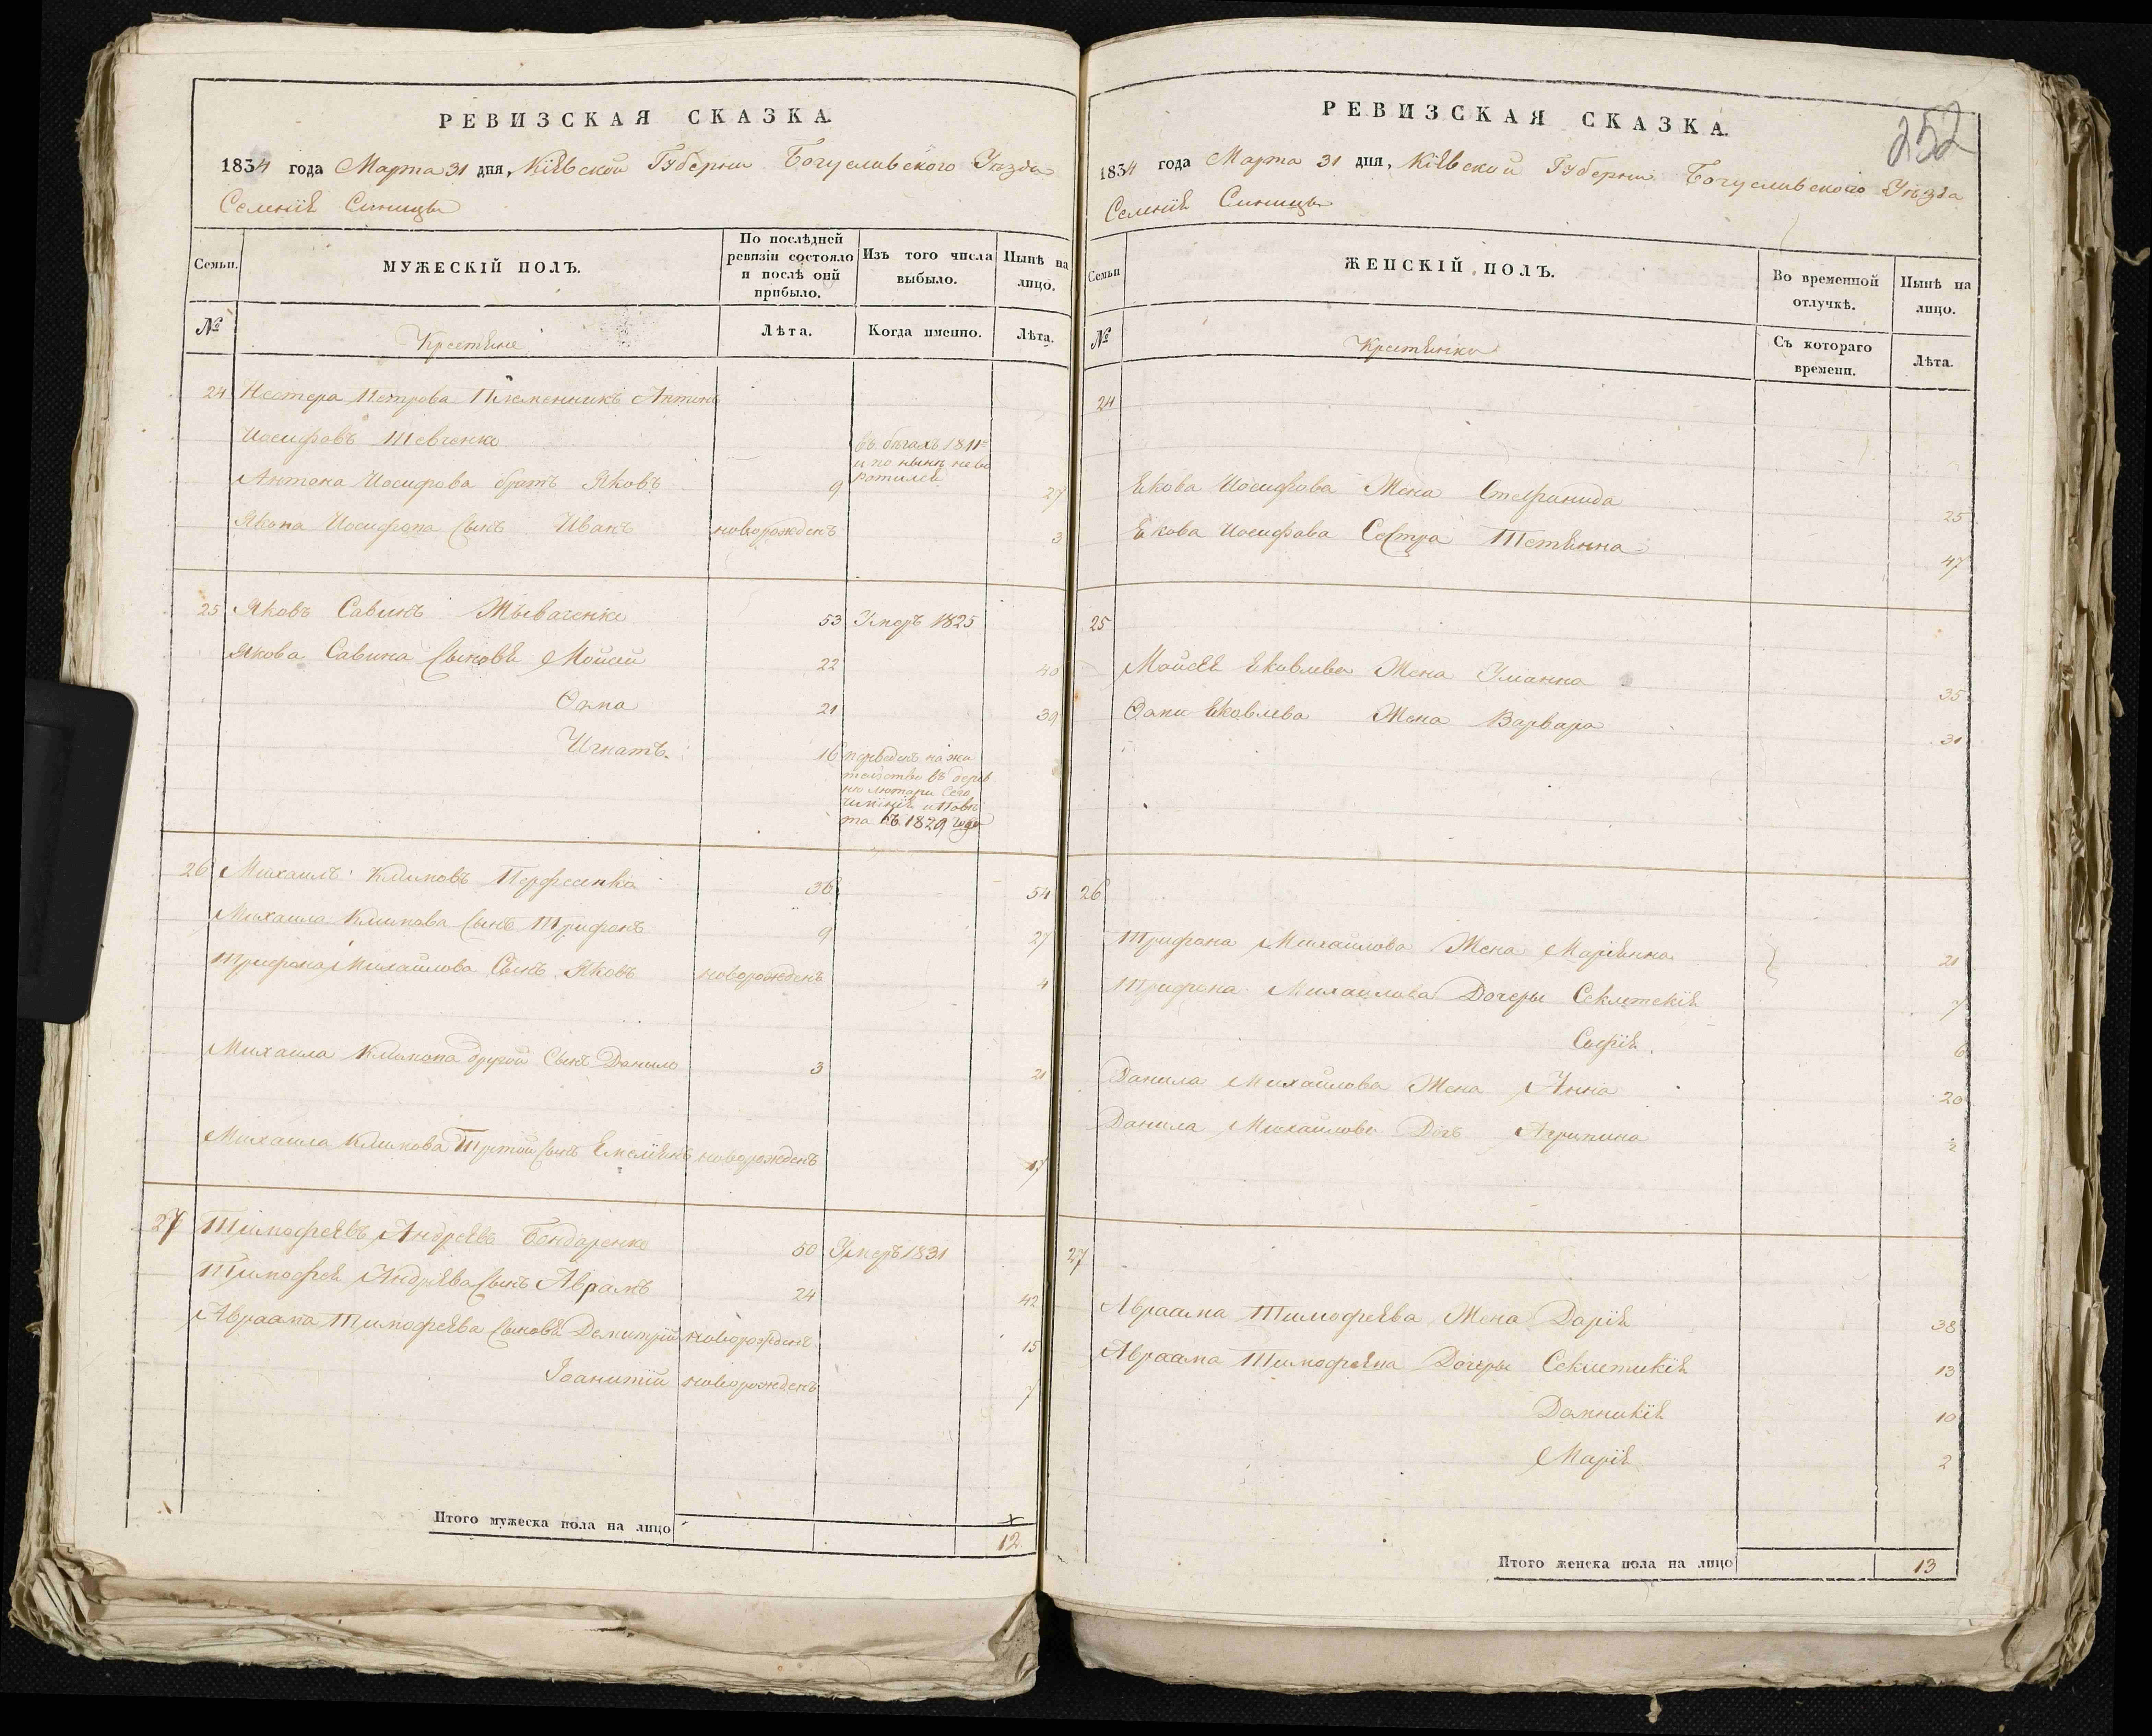 РЕВИЗСКАЯ СКАЗКА.
1834 года Марта 31 дня, Кіевской Губерніи Богуславского Уезда
Селенія Синицы
Семьи.
МУЖЕСКІЙ ПОЛЪ.
По послѣдней ревизіи состояло и послѣ оной прибыло.
Изъ того числа выбыло.
Нынѣ на лицо.
№
Крестяне
Лѣта.
Когда именно.
Лѣта.
24 Нестера Петрова Племенникъ Антонъ
Иосифовъ Шевченко въ бегахъ 1811
и по нынѣ
Антона Иосифова братъ Яковъ 9 27
Якова Иосифова Сынъ Иванъ новорожденъ 3
25 Яковъ Савинъ 53 Умеръ 1825
Якова Савина Сыновя Мойсей 22 40
Ѳома 21 39
Игнатъ. 16 переведенъ на жи
тельство въ дерев
ню
та въ 1829 году
26 Михаилъ Климовъ Перфеенко 36 54
Михаила Климова Сынъ Трифонъ 9 27
Трифона Михайлова Сынъ Яковъ новорожденъ 4
Михаила Климова другой Сынъ Данило 3 21
Михаила Климова Третій Сынъ Емеліянъ новорожденъ 17
27 Тимофеевъ Андреевъ Бондаренко 50 Умеръ 1831
Тимофея Андреева Сынъ Аврамъ 24 42
Авраама Тимофеева Сыновя Демитрій новорожденъ 15
новорожденъ 7
Итого мужеска пола на лицо 12
252
РЕВИЗСКАЯ СКАЗКА.
1834 года Марта 31 дня, Кіевской Губерніи Богуславского Уѣзда
Селенія Синицы
Семьи
ЖЕНСКІЙ ПОЛЪ.
Во временной отлучкѣ.
Нынѣ на лицо.
№
Крестянки
Съ котораго времени.
Лѣта.
24
Якова Иосифова Жена Стефанида 25
Якова Иосифова Сестра Тетянна 47
25
Мойсея Яковлева Жена Улианна 35
Ѳомы Яковлева Жена Варвара 31
26
Трифона Михайлова Жена Маріянна 21
Трифона Михайлова Дочеры Секлетекія 7
Софія 6
Данила Михайлова Жена Анна 20
Данила Михайлова Дочь Агрипина ½
27
Авраама Тимофеева Жена Дарія 38
Авраама Тимофеева Дочеры Секлетикія 13
Домникія 10
Марія 2
Итого женска пола на лицо 13